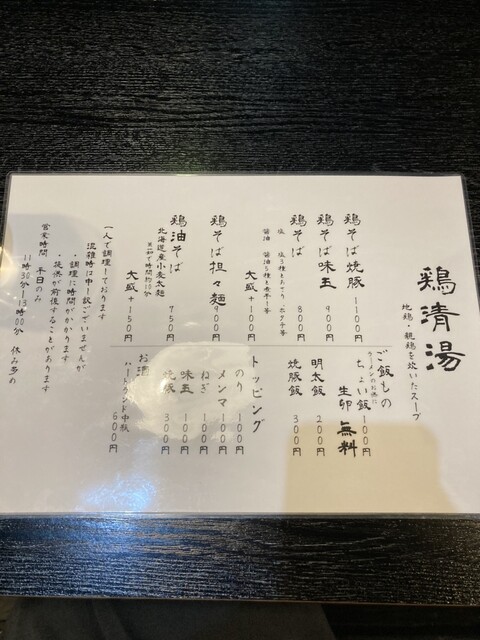 鶏清湯
地鶏・親鶏を炊いたスープ
鶏そば焼豚 1100円
鶏そば味玉 900円
鶏そば 800円
塩 塩3種とあさり・ホタテ等
醤油 醤油5種と煮干し等
大盛+100円
鶏そば担々麺 900円
鶏油そば 750円
北海道産小麦太麺
※茹で時間約10分
大盛+150円
ご飯もの
ラーメンのお供に
ちょい飯 100円
生卵 無料
明太飯 200円
焼豚飯 300円
トッピング
のり 100円
メンマ 100円
ねぎ 100円
味玉 100円
焼豚 300円
お酒
ハートランド中瓶 600円
一人で調理しております
混雑時は申し訳ございませんが
・調理に時間がかかります
・提供が前後することがあります
営業時間 平日のみ
11時30分-13時00分 休み多め